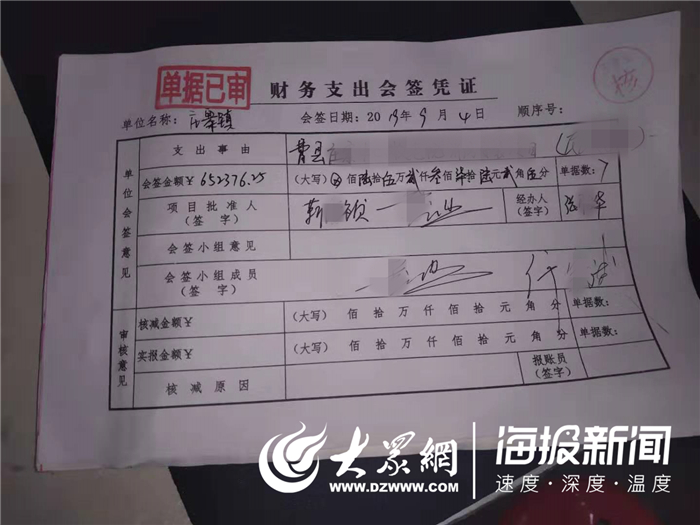 单据已审
财务支出会签凭证
单位名称：庄寨镇 会签日期：2019年9月4日 顺序号：
单位会签意见
支出事由 曹县
会签金额¥652376.25 （大写）⊗佰陆拾伍万贰仟叁佰柒拾陆元贰角伍分 单据数：7
项目批准人（签字） 经办人（签字）
会签小组意见
会签小组成员（签字）
审核意见
核减金额¥ （大写） 佰 拾 万 仟 佰 拾 元 角 分 单据数：
实报金额¥ （大写） 佰 拾 万 仟 佰 拾 元 角 分 单据数：
核减原因 报账员（签字）
大众网 海报新闻
WWW.DZWWW.COM 速度·深度·温度